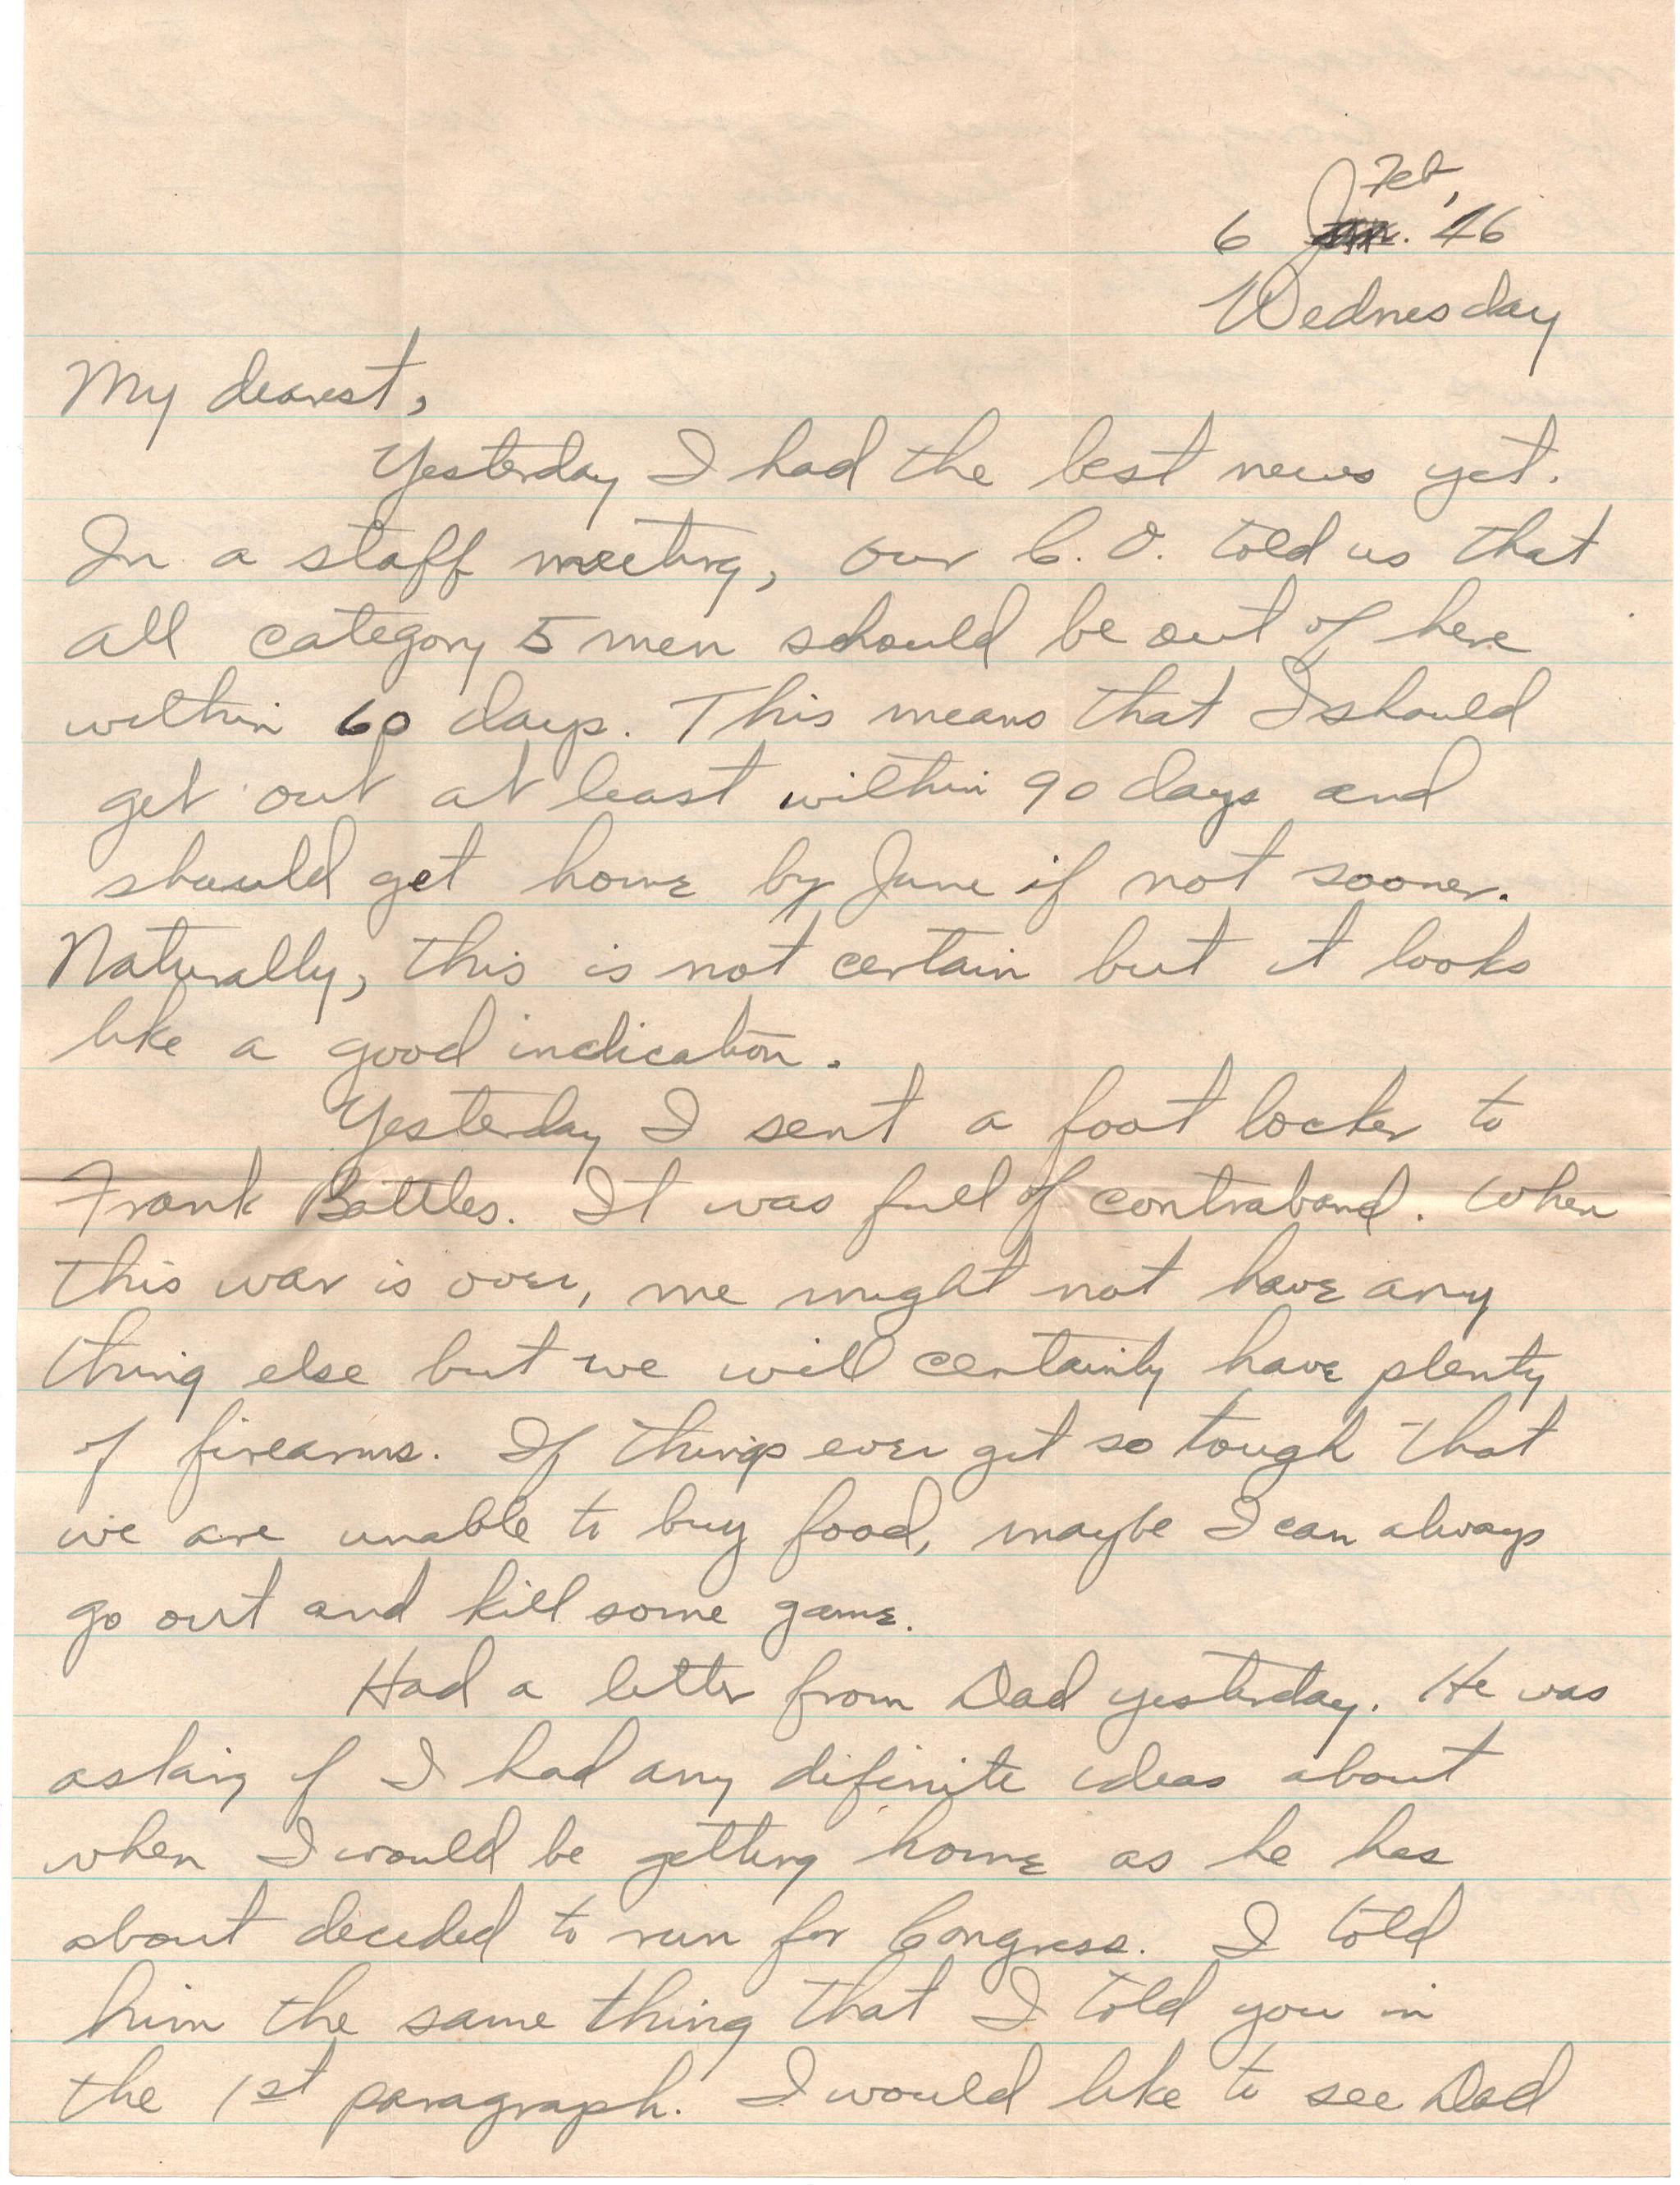 Feb,
6 Jan. '46
Wednesday
My dearest,
Yesterday I had the best news yet.
In a staff meeting, our C.O. told us that
all category 5 men should be out of here
within 60 days. This means that I should
get out at least within 90 days and
should get home by June if not sooner.
Naturally, this is not certain but it looks
like a good indication.
Yesterday I sent a foot locker to
Frank Battles. It was full of contraband. When
this war is over, we might not have any
thing else but we will certainly have plenty
of firearms. If things ever get so tough that
we are unable to buy food, maybe I can always
go out and kill some game.
Had a letter from Dad yesterday. He was
asking if I had any difinite ideas about
when I would be getting home as he has
about decided to run for Congress. I told
him the same thing that I told you in
the 1st paragraph. I would like to see Dad